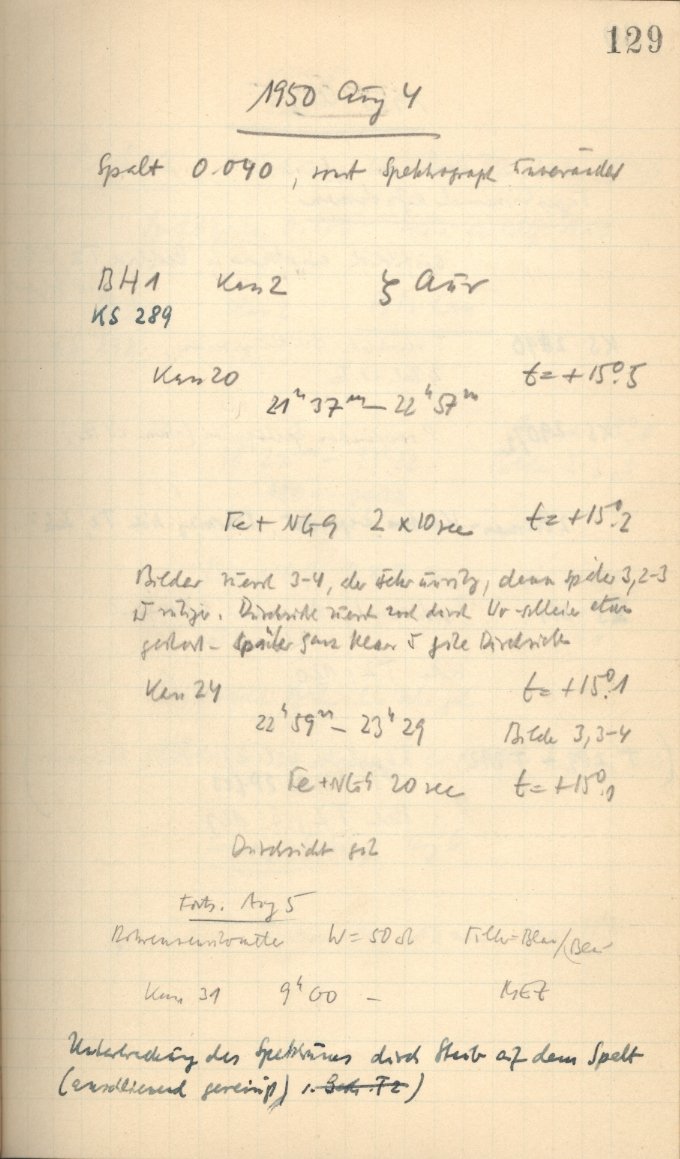 129
1950 Aug 4
Spalt 0.040, sonst Spektrograph unverändert
BH1 Kass 2 ζ Aur
KS 289
Kass 20 t = +15°.5
21ʰ 37ᵐ – 22ʰ 57ᵐ
Fe + NG9 2 x 10 sec t = +15°.2
Bilder zuerst 3-4, sehr unruhig, dann später 3, 2-3
u ruhiger. Durchsicht zuerst noch durch etwas
gestört – später ganz klar u gute Durchsicht
Kass 24 t = +15°.1
22ʰ 59ᵐ – 23ʰ 29 Bilder 3, 3-4
Fe + NG9 20 sec t = +15°.1
Durchsicht gut
Forts. Aug 5
W = 50 Filter Blau
Kass 31 9ʰ 00 – MEZ
Unterbrechung des Spektrums durch Staub auf dem Spalt
(anschliessend gereinigt)